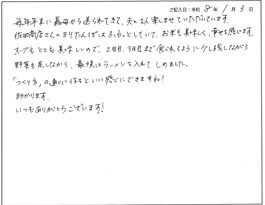 ご記入日:令和 8年 1月 3日
毎年年末に義母から送られてきて、夫と2人楽しませていただいています。
佐田商店さんのきりたんぽはふわっとしていて、お米も美味しく、幸せを感います。
スープもとても美味しいので、2日目、3日目まで食べれるように少し残しながら
野菜も足しながら、最後はラーメンを入れて しめました。
「つくり方」の通りに作るといい感じにできますね!
助かります。
いつもありがとうございます!